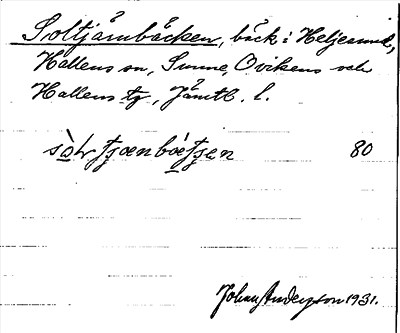 Soltjärnbäcken, bäck i Heljesund,
Hallens sn, Sunne, Ovikens och
Hallens tg, Jämtl. l.
80
Johan Anderson 1931.